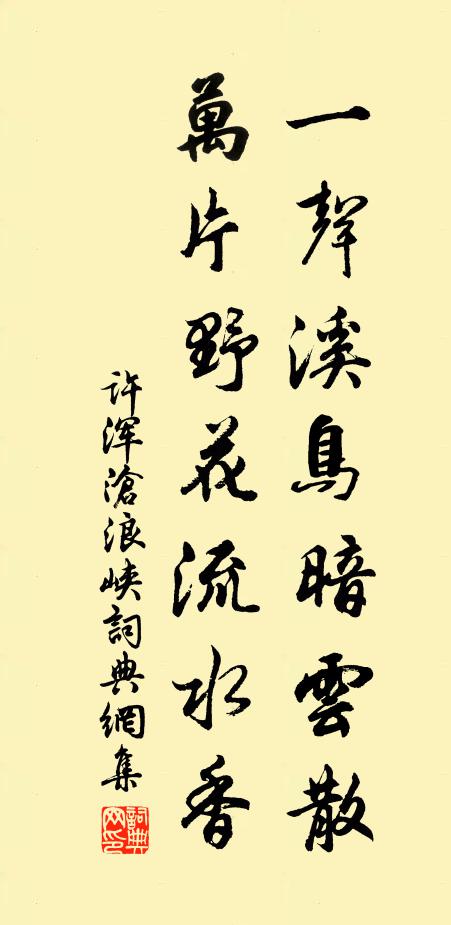 一聲溪鳥暗雲散
萬片野花流水香
許渾滄浪峽詞典網集
詞典网印